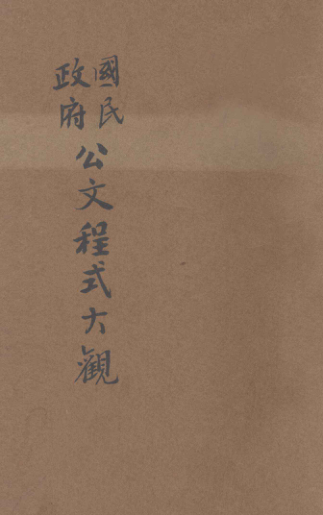 國民政府公文程式大觀